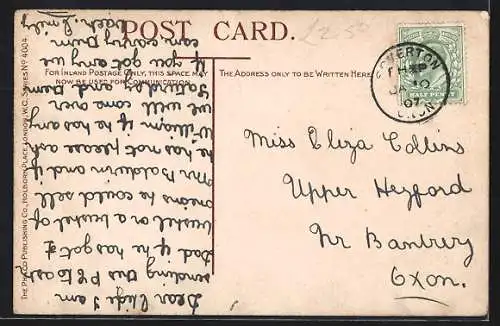 POST CARD.
£2.50
FOR INLAND POSTAGE ONLY, THIS SPACE MAY
NOW BE USED FOR COMMUNICATION.
THE ADDRESS ONLY TO BE WRITTEN HERE.
HALF PENNY
SOMERTON
JA 10
07
OXON
Miss Eliza Collins
Upper Heyford
Nr Banbury
Oxon.
Dear I am
sending this P.C to ask
Dad if he has got a
bushel or a bushel of
onions he could sell
Mr Baldwin and if
he has not please ask
William if he has any
we will come over
Saturday and
if you got any we
can carry
back. Emily
THE PHILCO PUBLISHING CO., HOLBORN PLACE, LONDON, W.C. SERIES No 4004.